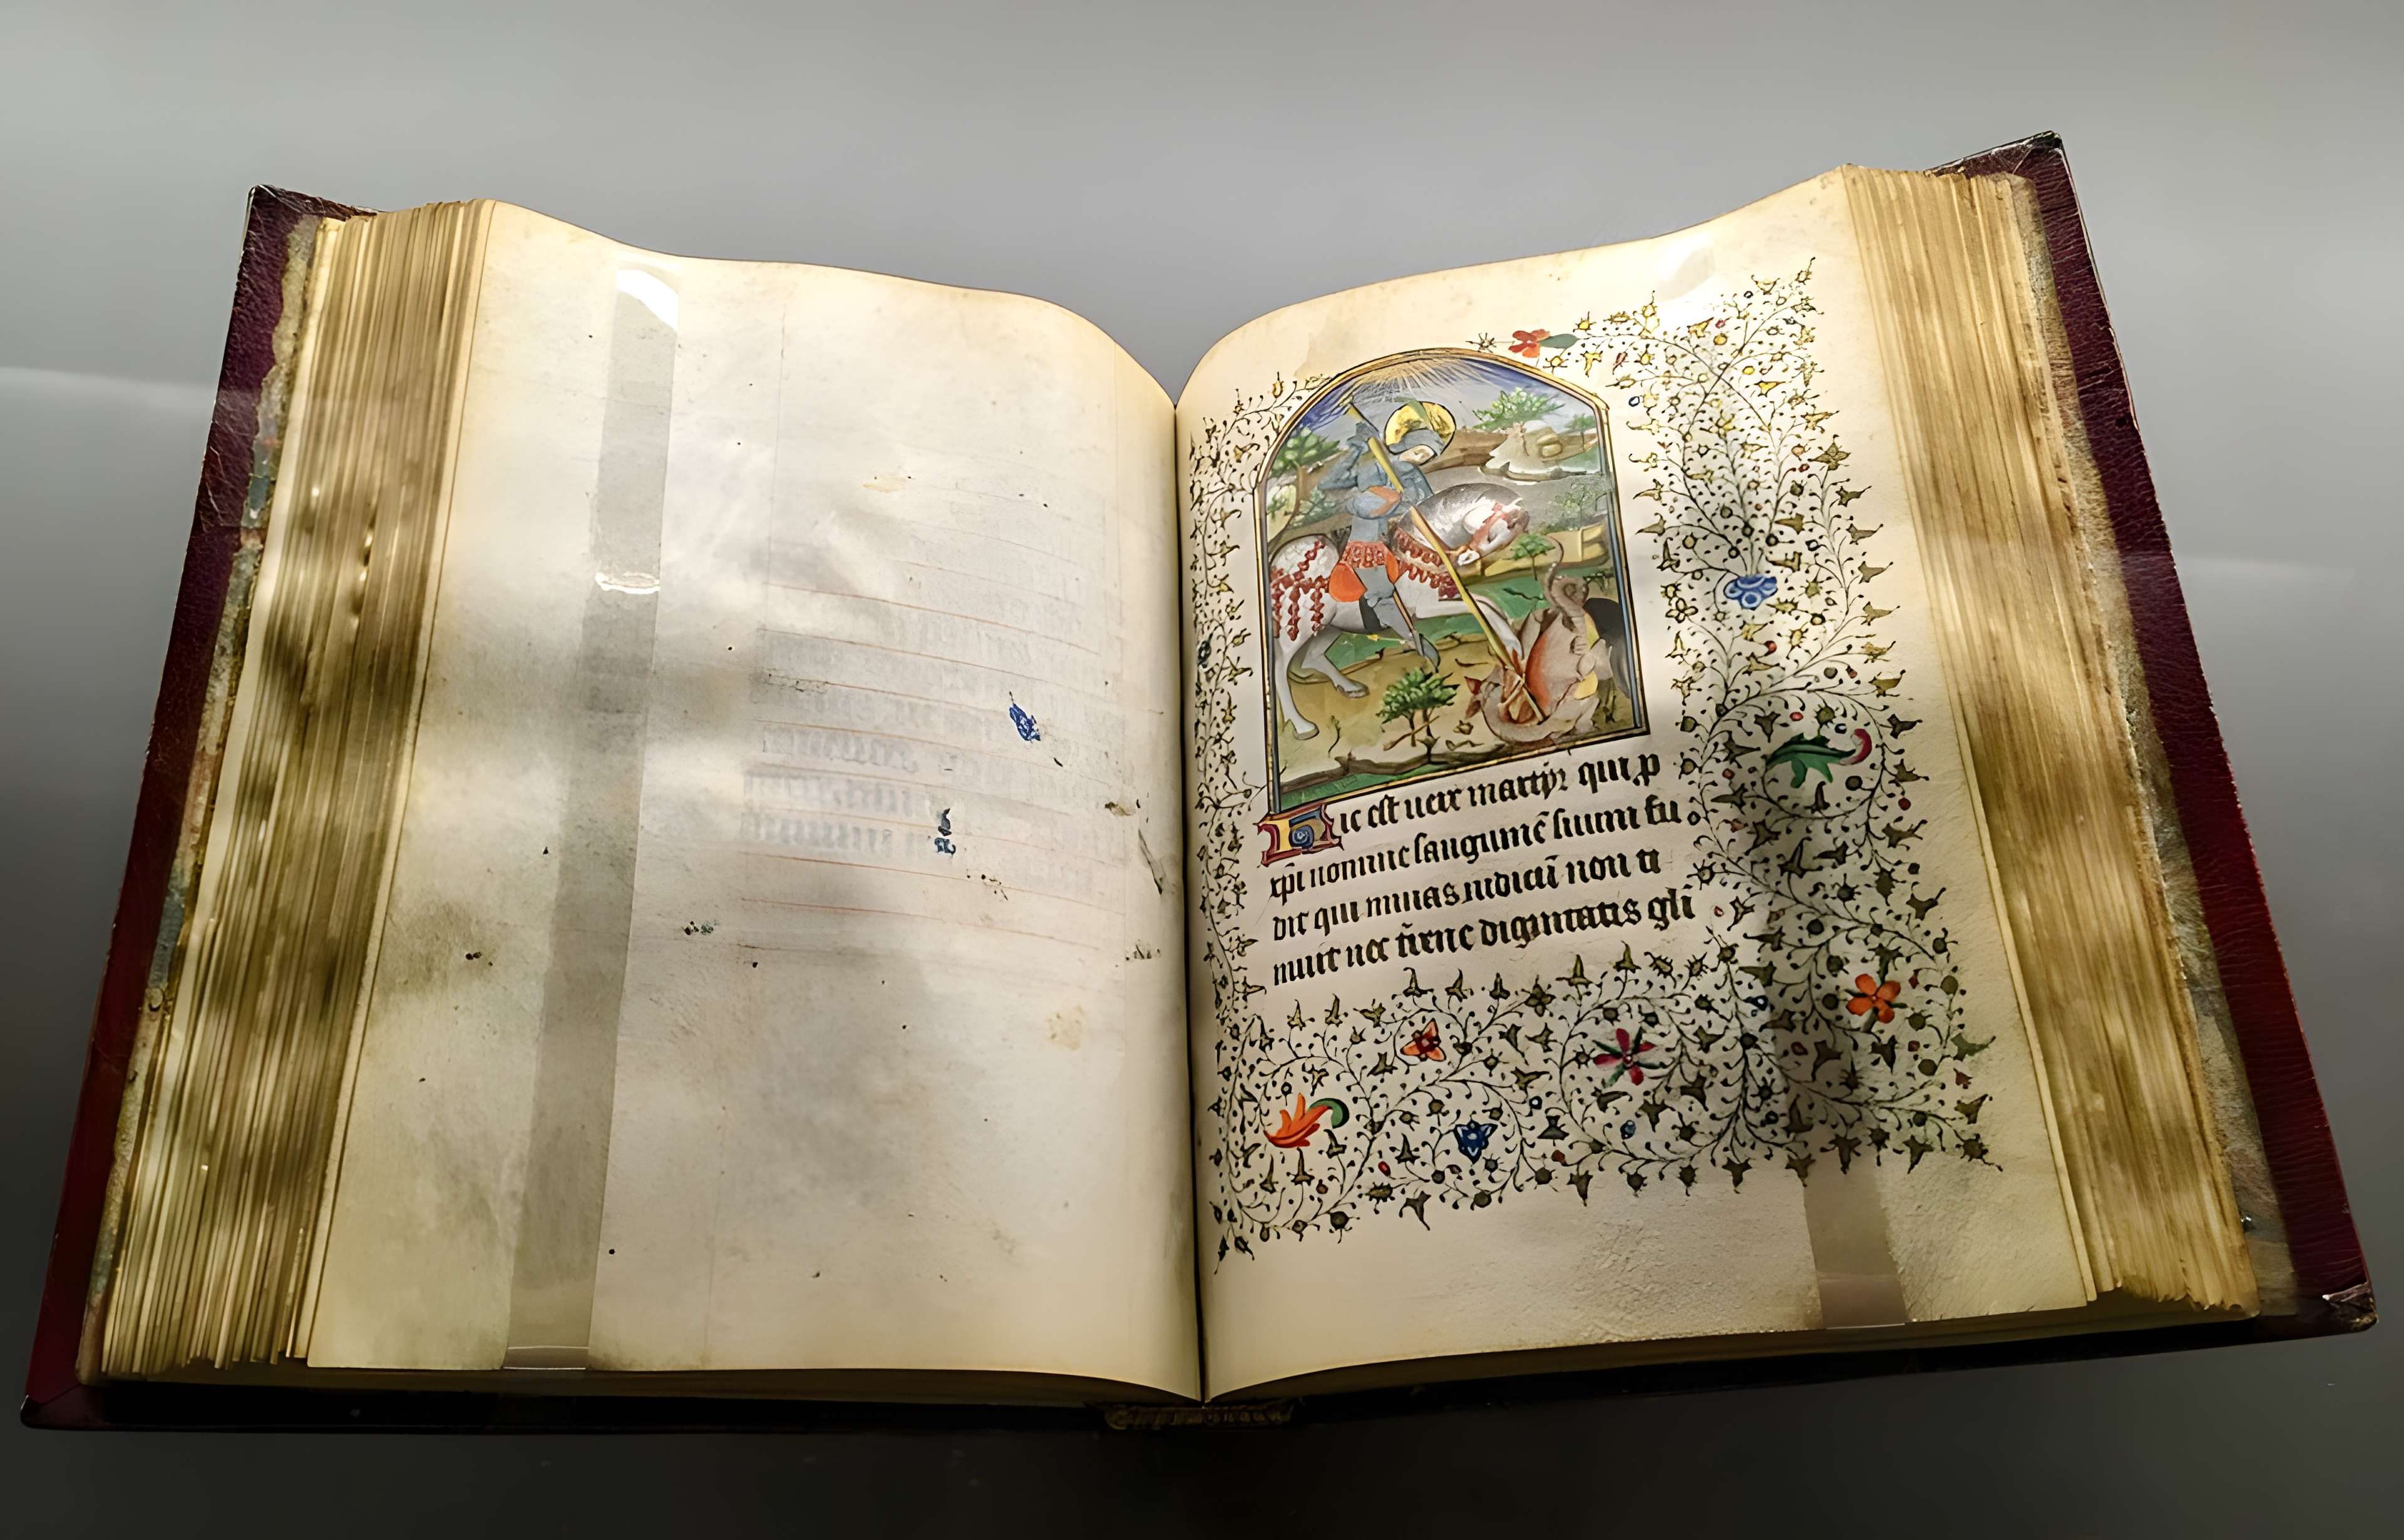 Hic est uere martyr qui p
xpi nomine sanguinē suum fu
dit qui minas iudicū non ti
muit nec t̄rene dignitatis gl̄i